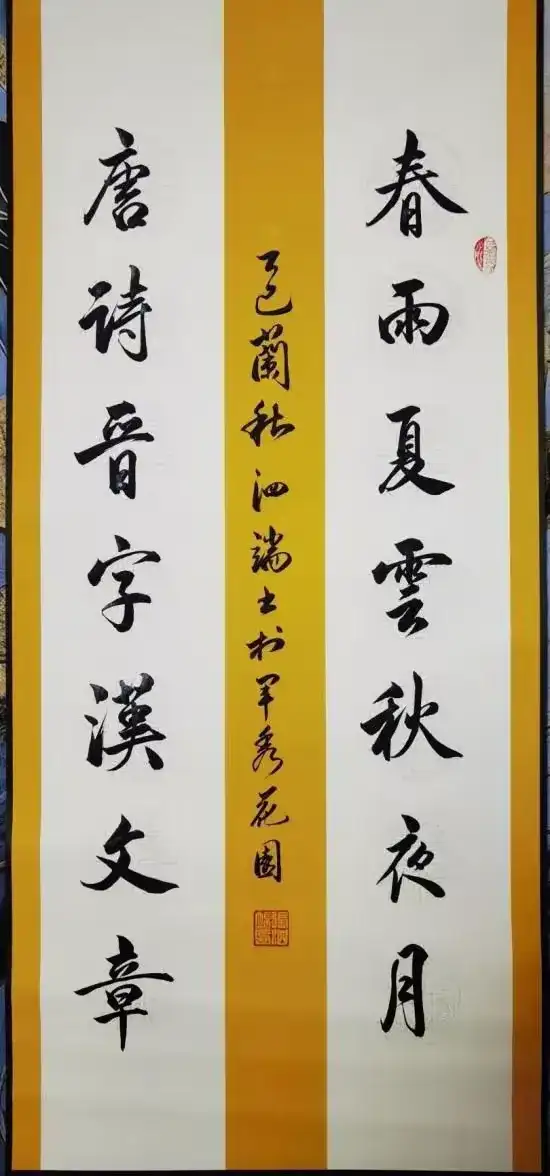 春雨夏雲秋夜月
唐詩晉字漢文章
乙巳蘭秋泗端書於軍秀花園